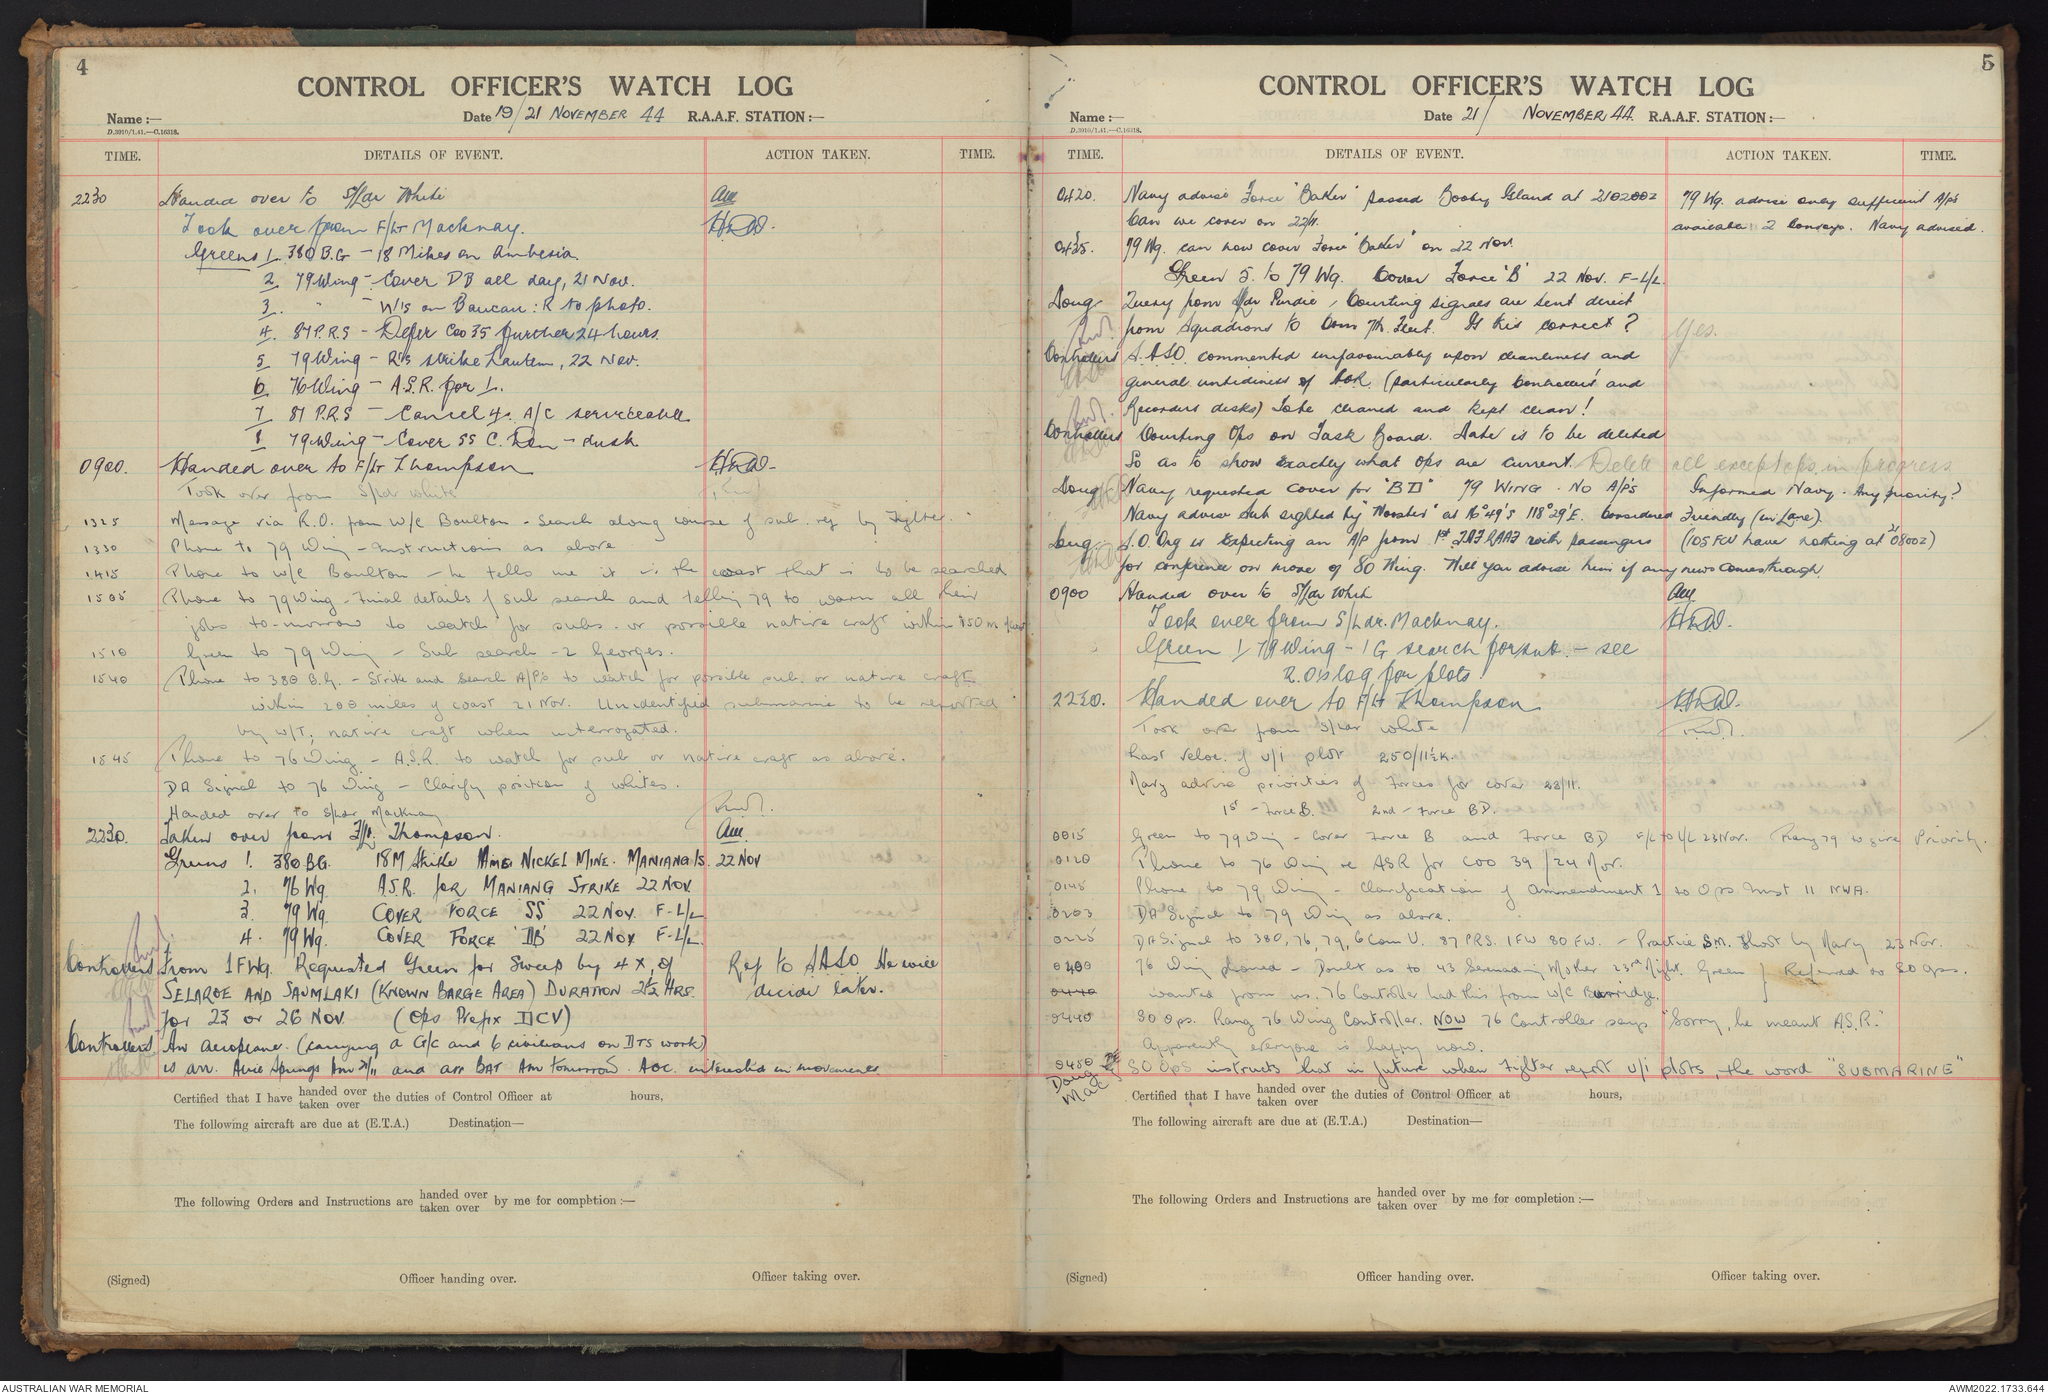 4
CONTROL OFFICER'S WATCH LOG
Name:— Date 19/21 NOVEMBER 44 R.A.A.F. STATION:—
D.3910/1.41.—C.16318.
TIME. DETAILS OF EVENT. ACTION TAKEN. TIME.
2230 Handed over to S/Ldr White
Took over from F/Lt Macknay.
Greens 1. 380 B.G - 18 Mikes on Ambesia
2. 79 Wing - Cover DB all day, 21 Nov.
3. " - W/S on Baucau: R to photo.
4. 87 P.R.S - Defer Coo 35 further 24 hours.
5 79 Wing - R's strike Lautem, 22 Nov.
6 76 Wing - A.S.R. for 1.
7 87 P.R.S - Cancel 4. A/C serviceable
8 79 Wing - Cover SS C. Dawn - dusk
0900. Handed over to F/Lt Thompson
Took over from S/Ldr White
1325 Message via R.O. from W/C Boulton - Search along course of sub. rep by Fighter.
1330 Phone to 79 Wing - instructions as above
1415 Phone to W/C Boulton - he tells me it is the coast that is to be searched
1505 Phone to 79 Wing - Final details of sub search and telling 79 to warn all their
jobs to-morrow to watch for subs. or possible native craft within 150 m of coast
1510 Green to 79 Wing - Sub search - 2 Georges.
1540 Phone to 380 B.G. - Strike and Search A/P's to watch for possible sub. or native craft
within 200 miles of coast 21 Nov. Unidentified submarine to be reported
by W/T; native craft when interrogated.
1545 Phone to 76 Wing - A.S.R. to watch for sub or native craft as above.
DA Signal to 76 Wing - Clarify position of whites.
Handed over to S/Ldr Macknay
2230. Taken over from F/Lt. Thompson.
Greens 1. 380 BG. 18 M Strike NICKEL MINE. MANIANG IS. 22 NOV
2. 76 Wg A.S.R. for MANIANG STRIKE 22 NOV
3. 79 Wg. COVER FORCE SS 22 NOV. F-L/L
4. 79 Wg. COVER FORCE 'DB' 22 NOV F-L/L.
Controllers From 1 F Wg. Requested Green for Sweep by 4 X, of Ref to SASO He will
SELAROE AND SAUMLAKI (KNOWN BARGE AREA) DURATION 2½ HRS. decide later.
for 23 or 26 NOV (Ops Prefix DCV)
Controllers An aeroplane. (carrying a G/C and 6 civilians on DTS work)
is arr. Alice Springs and arr BAT Am tomorrow. AOC. interested in movements
Certified that I have handed over / taken over the duties of Control Officer at hours,
The following aircraft are due at (E.T.A.) Destination—
The following Orders and Instructions are handed over / taken over by me for completion:—
(Signed) Officer handing over. Officer taking over.
5
CONTROL OFFICER'S WATCH LOG
Name:— Date 21/ NOVEMBER 44 R.A.A.F. STATION:—
D.3910/1.41.—C.16318.
TIME. DETAILS OF EVENT. ACTION TAKEN. TIME.
0420. Navy advise Force "Baker" passed Booby Island at 210200Z 79 Wg. advise only sufficient A/P's
Can we cover on 22/11. available 2 convoys. Navy advised.
0435. 79 Wg. can now cover Force "Baker" on 22 Nov.
Green 5. to 79 Wg. Cover Force 'B' 22 Nov. F-L/L.
Doug Query from S/Ldr Purdie, Courting signals are sent direct
from Squadrons to Com 7th Fleet. Is this correct? Yes.
Controllers S.A.S.O. commented unfavourably upon cleanliness and
general untidiness of (particularly Controllers' and
Recorders desks) To be cleaned and kept clean!
Controllers Courting Ops on Task Board. Date is to be deleted
So as to show exactly what ops are current. Delete all except ops in progress
Doug Navy requested cover for "BD" 79 WING. NO A/P's Informed Navy. Any priority?
Navy advise sub sighted by at 16°49'S 118°29'E. Considered Friendly (in Lane).
Doug S.O. Org is expecting an A/P from 1st TAF RAAF with passengers (105 FCU have nothing at 210800Z)
for conference on move of 80 Wing. Will you advise him if any news comes through.
0900 Handed over to S/Ldr White
Took over from S/Ldr. Macknay.
Green 1 79 Wing - 1 G search for sub. - see
R.O's log for plots.
2230. Handed over to F/Lt Thompson
Took over from S/Ldr White
Last veloc. of U/I plot 250/11½K.
Navy advise priorities of Forces for cover 23/11.
1st - Force B. 2nd - Force BD.
0015 Green to 79 Wing - Cover Force B and Force BD F/L to L/L 23 Nov. Rang 79 to give Priority.
0120 Phone to 76 Wing re ASR for COO 39 / 24 Nov.
0145 Phone to 79 Wing - Clarification of Ammendment 1 to Ops Inst 11 NWA.
0203 DA Signal to 79 Wing as above.
0225 DA Signal to 380, 76, 79, 6 Com U. 87 PRS. 1 FW 80 FW. - Practice S.M. Shoot by Navy 23 Nov.
0400 76 Wing phoned - Doubt as to 43 Serenading Mother 23rd Night. Green Referred to SO Ops.
0440 wanted from us. 76 Controller had this from W/C Burridge.
0440 SO Ops. Rang 76 Wing Controller. NOW 76 Controller says "Sorry, he meant A.S.R."
Apparently everyone is happy now.
0450 SO Ops instructs that in future when Fighter report U/I plots, the word "SUBMARINE"
Doug
Mac
Certified that I have handed over / taken over the duties of Control Officer at hours,
The following aircraft are due at (E.T.A.) Destination—
The following Orders and Instructions are handed over / taken over by me for completion:—
(Signed) Officer handing over. Officer taking over.
AUSTRALIAN WAR MEMORIAL AWM2022.1733.644